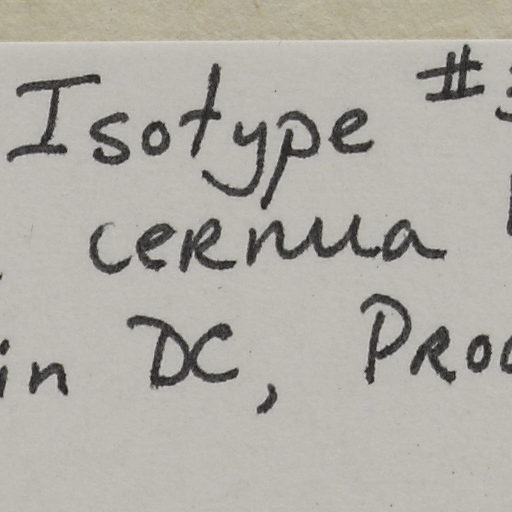 Isotype #
cernua
in DC, Prod